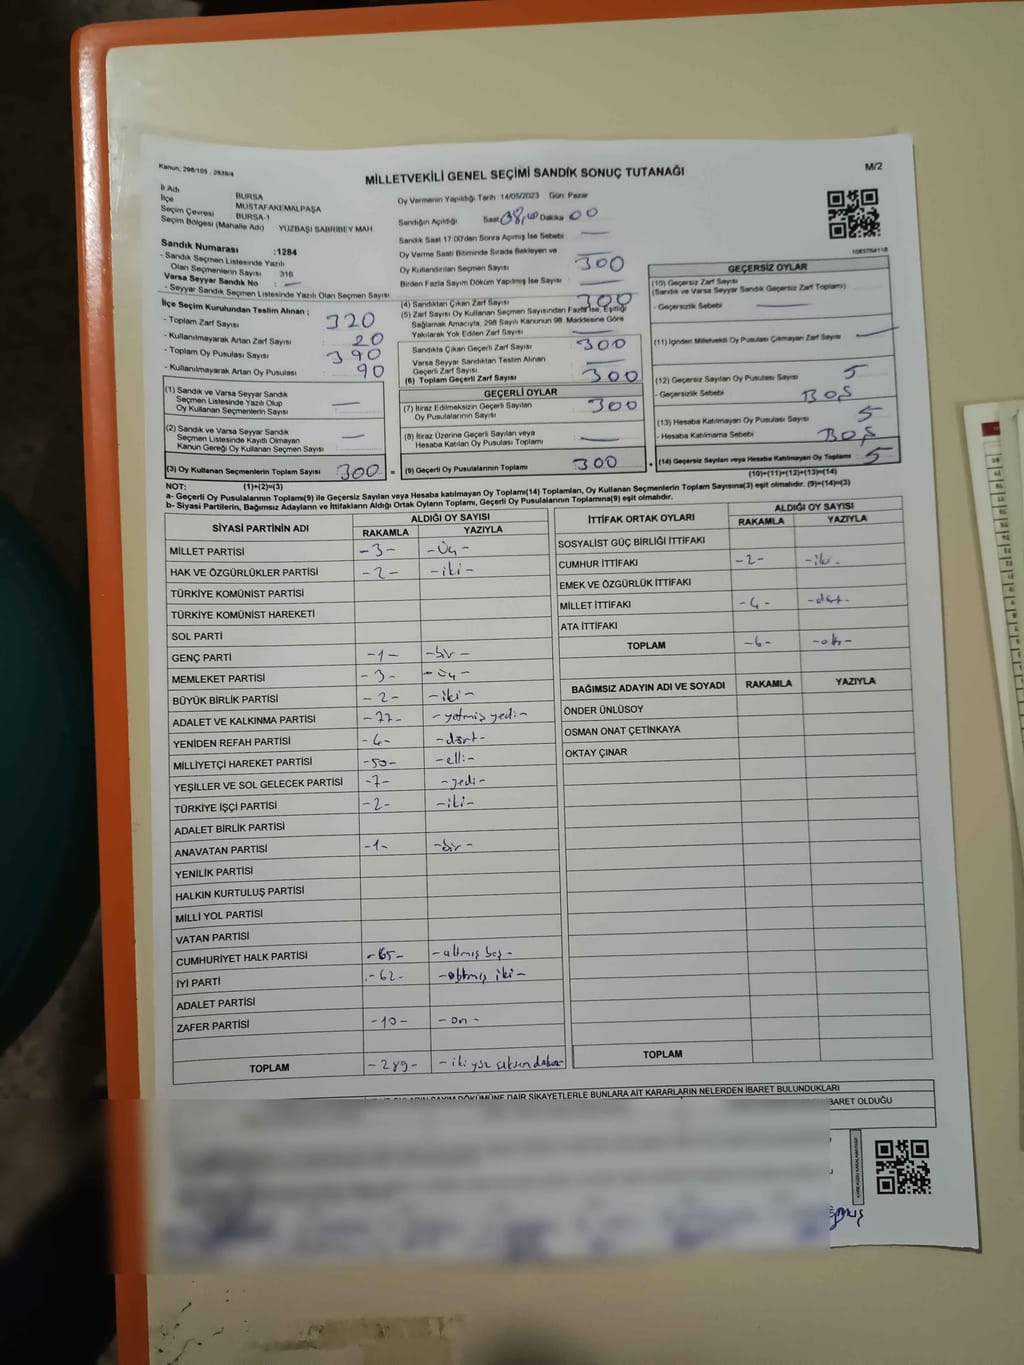 Kanun, 298/105 , 2839/4
M/2
MİLLETVEKİLİ GENEL SEÇİMİ SANDIK SONUÇ TUTANAĞI
İl Adı BURSA
İlçe MUSTAFAKEMALPAŞA
Seçim Çevresi BURSA-1
Seçim Bölgesi (Mahalle Adı) YÜZBAŞI SABRİBEY MAH
Sandık Numarası :1284
- Sandık Seçmen Listesinde Yazılı
Olan Seçmenlerin Sayısı 316
Varsa Seyyar Sandık No : —
- Seyyar Sandık Seçmen Listesinde Yazılı Olan Seçmen Sayısı
İlçe Seçim Kurulundan Teslim Alınan ;
- Toplam Zarf Sayısı 320
- Kullanılmayarak Artan Zarf Sayısı : 20
- Toplam Oy Pusulası Sayısı 390
- Kullanılmayarak Artan Oy Pusulası : 90
(1) Sandık ve Varsa Seyyar Sandık
Seçmen Listesinde Yazılı Olup
Oy Kullanan Seçmenlerin Sayısı —
(2) Sandık ve Varsa Seyyar Sandık
Seçmen Listesinde Kayıtlı Olmayan
Kanun Gereği Oy Kullanan Seçmen Sayısı : —
(3) Oy Kullanan Seçmenlerin Toplam Sayısı 300 =
Oy Vermenin Yapıldığı Tarih 14/05/2023 Gün: Pazar
Sandığın Açıldığı Saat 08,00 Dakika 00
Sandık Saat 17:00'den Sonra Açılmış İse Sebebi —
Oy Verme Saati Bitiminde Sırada Bekleyen ve
Oy Kullandırılan Seçmen Sayısı 300
Birden Fazla Sayım Döküm Yapılmış İse Sayısı —
(4) Sandıktan Çıkan Zarf Sayısı 300
(5) Zarf Sayısı Oy Kullanan Seçmen Sayısından Fazla İse, Eşitliği
Sağlamak Amacıyla, 298 Sayılı Kanunun 98. Maddesine Göre
Yakılarak Yok Edilen Zarf Sayısı —
Sandıkta Çıkan Geçerli Zarf Sayısı : 300
Varsa Seyyar Sandıktan Teslim Alınan
Geçerli Zarf Sayısı —
(6) Toplam Geçerli Zarf Sayısı : 300
GEÇERLİ OYLAR
(7) İtiraz Edilmeksizin Geçerli Sayılan
Oy Pusulalarının Sayısı : 300
(8) İtiraz Üzerine Geçerli Sayılan veya
Hesaba Katılan Oy Pusulası Toplamı : —
(9) Geçerli Oy Pusulalarının Toplamı : 300 +
GEÇERSİZ OYLAR
(10) Geçersiz Zarf Sayısı
(Sandık ve Varsa Seyyar Sandık Geçersiz Zarf Toplamı)
- Geçersizlik Sebebi : —
(11) İçinden Milletvekili Oy Pusulası Çıkmayan Zarf Sayısı —
(12) Geçersiz Sayılan Oy Pusulası Sayısı : 5
- Geçersizlik Sebebi : BOŞ
(13) Hesaba Katılmayan Oy Pusulası Sayısı : 5
- Hesaba Katılmama Sebebi : BOŞ
(14) Geçersiz Sayılan veya Hesaba Katılmayan Oy Toplamı : 5
(10)+(11)+(12)+(13)=(14)
NOT: (1)+(2)=(3)
a- Geçerli Oy Pusulalarının Toplamı(9) ile Geçersiz Sayılan veya Hesaba katılmayan Oy Toplamı(14) Toplamları, Oy Kullanan Seçmenlerin Toplam Sayısına(3) eşit olmalıdır. (9)+(14)=(3)
b- Siyasi Partilerin, Bağımsız Adayların ve İttifakların Aldığı Ortak Oyların Toplamı, Geçerli Oy Pusulalarının Toplamına(9) eşit olmalıdır.
SİYASİ PARTİNİN ADI ALDIĞI OY SAYISI
RAKAMLA YAZIYLA
MİLLET PARTİSİ -3- -üç-
HAK VE ÖZGÜRLÜKLER PARTİSİ -2- -iki-
TÜRKİYE KOMÜNİST PARTİSİ
TÜRKİYE KOMÜNİST HAREKETİ
SOL PARTİ
GENÇ PARTİ -1- -bir-
MEMLEKET PARTİSİ -3- -üç-
BÜYÜK BİRLİK PARTİSİ -2- -iki-
ADALET VE KALKINMA PARTİSİ -77- -yetmiş yedi-
YENİDEN REFAH PARTİSİ -4- -dört-
MİLLİYETÇİ HAREKET PARTİSİ -50- -elli-
YEŞİLLER VE SOL GELECEK PARTİSİ -7- -yedi-
TÜRKİYE İŞÇİ PARTİSİ -2- -iki-
ADALET BİRLİK PARTİSİ
ANAVATAN PARTİSİ -1- -bir-
YENİLİK PARTİSİ
HALKIN KURTULUŞ PARTİSİ
MİLLİ YOL PARTİSİ
VATAN PARTİSİ
CUMHURİYET HALK PARTİSİ -65- -altmış beş-
İYİ PARTİ -62- -altmış iki-
ADALET PARTİSİ
ZAFER PARTİSİ -10- -on-
TOPLAM -289- -iki yüz seksen dokuz-
İTTİFAK ORTAK OYLARI ALDIĞI OY SAYISI
RAKAMLA YAZIYLA
SOSYALİST GÜÇ BİRLİĞİ İTTİFAKI
CUMHUR İTTİFAKI -2- -iki-
EMEK VE ÖZGÜRLÜK İTTİFAKI
MİLLET İTTİFAKI -4- -dört-
ATA İTTİFAKI
TOPLAM -6- -altı-
BAĞIMSIZ ADAYIN ADI VE SOYADI RAKAMLA YAZIYLA
ÖNDER ÜNLÜSOY
OSMAN ONAT ÇETİNKAYA
OKTAY ÇINAR
TOPLAM
SAYIM DÖKÜMÜNE DAİR ŞİKAYETLERLE BUNLARA AİT KARARLARIN NELERDEN İBARET BULUNDUKLARI
İBARET OLDUĞU